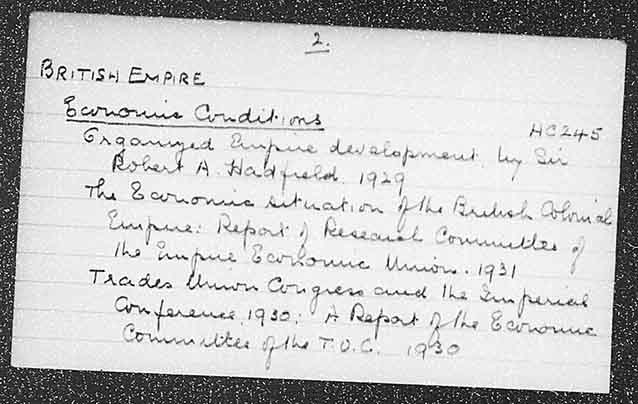 2.
BRITISH EMPIRE
Economic Conditions
HC245
Organized Empire development, by Sir
Robert A. Hadfield. 1929
The Economic situation of the British Colonial
Empire: Report of Research Committee of
the Empire Economic Union. 1931
Trades Union Congress and the Imperial
Conference, 1930: A Report of the Economic
Committee of the T.U.C. 1930